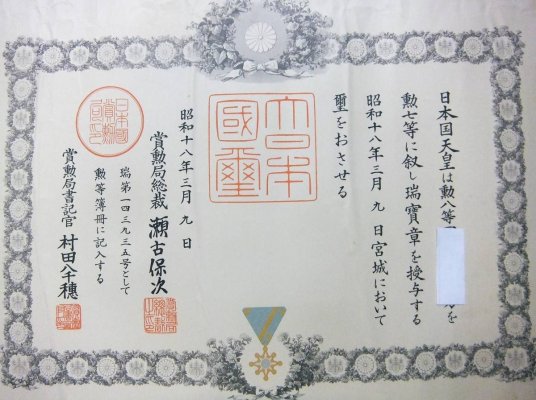 日本国天皇は勲八等
を
勲七等に叙し瑞寶章を授与する
昭和十八年三月九日宮城において
璽をおさせる
大日本國璽
昭和十八年三月九日
賞勲局総裁 瀬古保次
瑞第一四三九三五号として
勲等簿冊に記入する
賞勲局書記官 村田八千穂